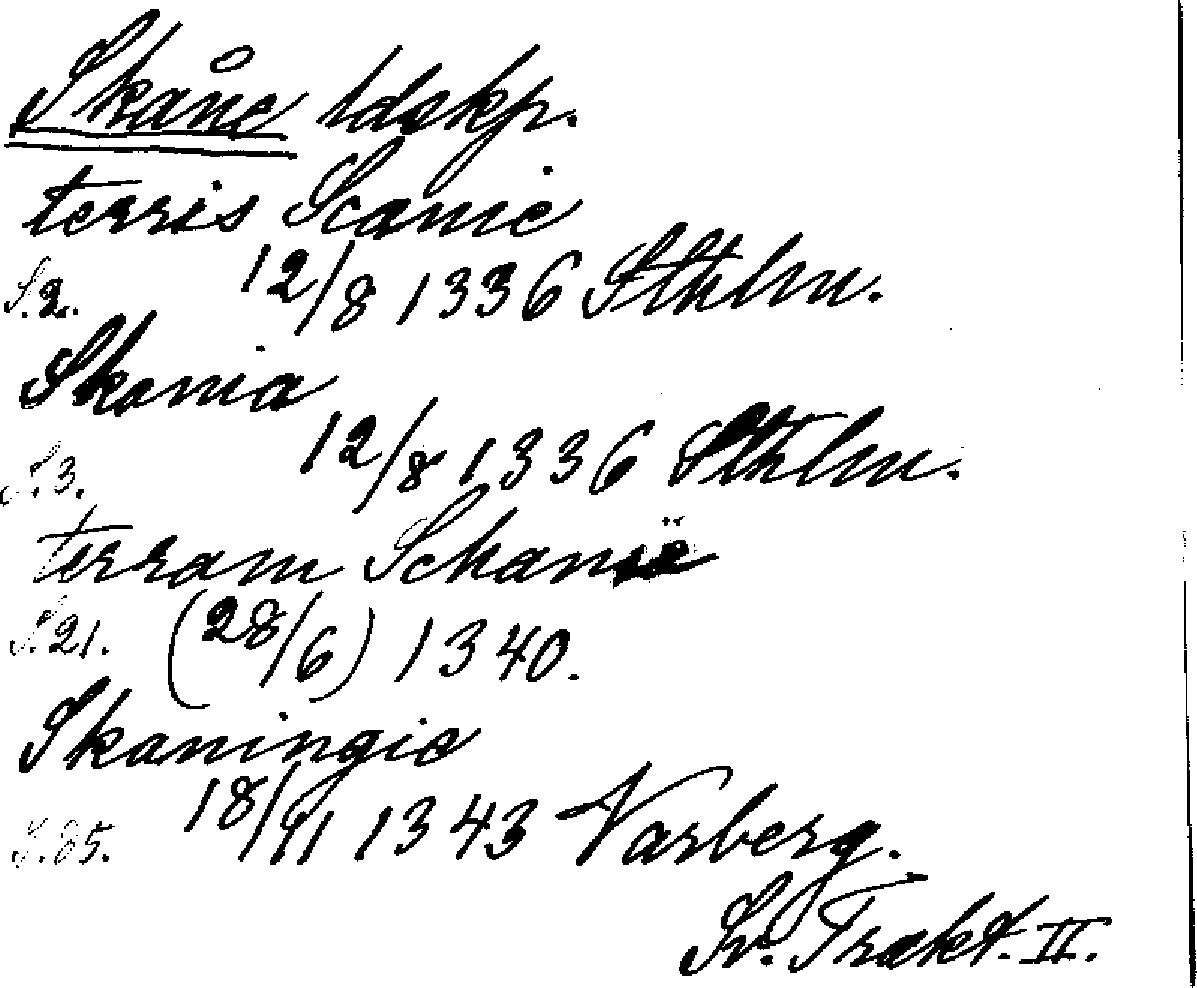 Skåne ldskp.
terris Scanie
S. 2. 12/8 1336 Sthlm.
Skania
S. 3. 12/8 1336 Sthlm.
terram Schanië
S. 21. (28/6) 1340.
Skaningie
S. 85. 18/11 1343 Varberg.
Sv. Trakt. II.